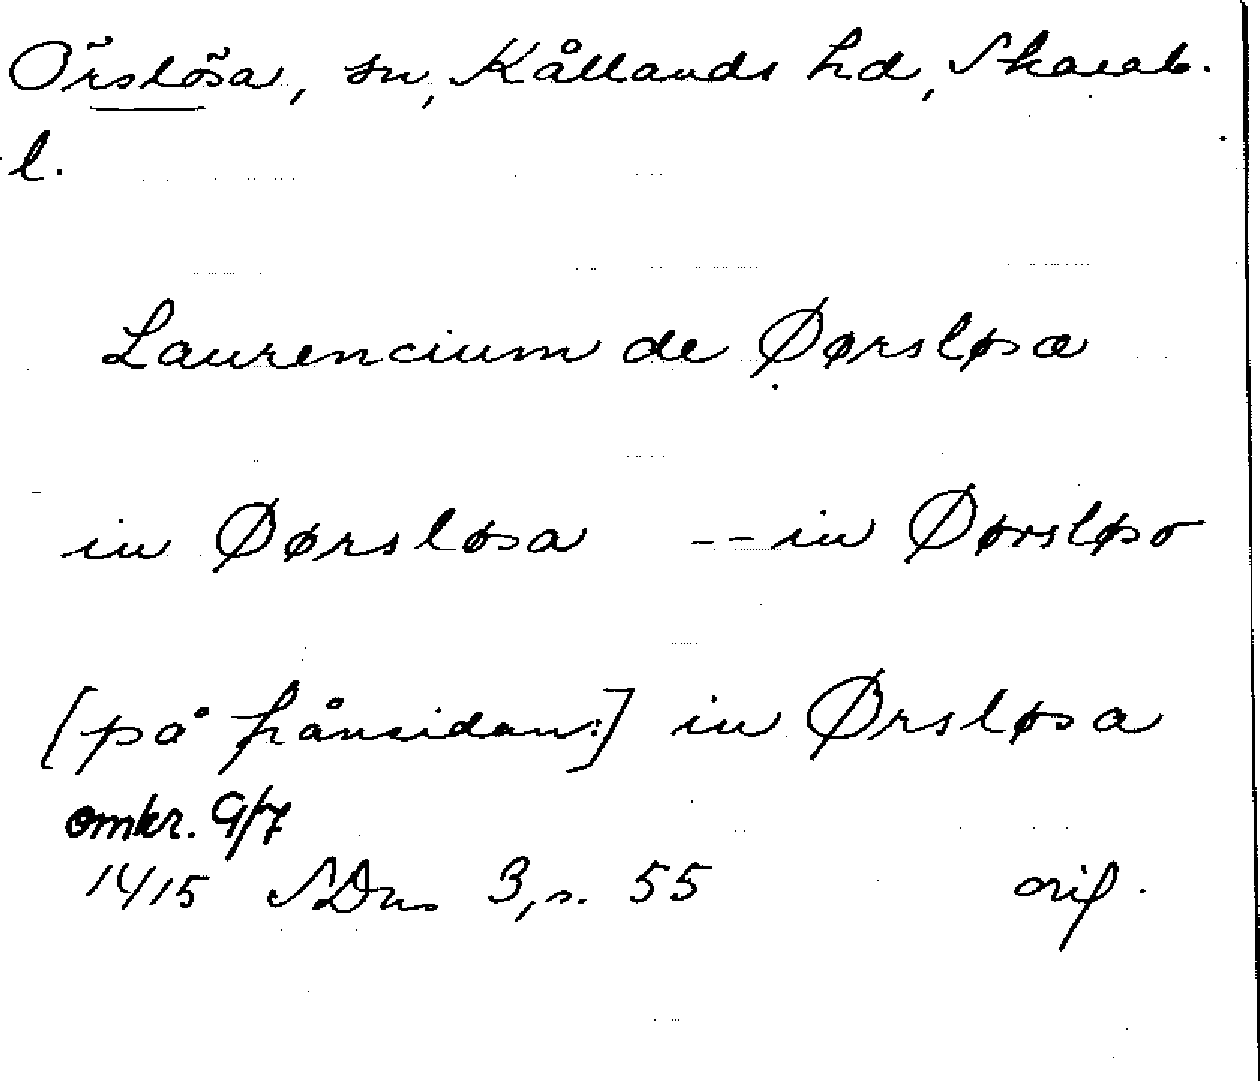 Örslösa, sn, Kållands hd, Skarab.
l.
Laurencium de Øørsløsæ
in Øørsløsa -- in Øørsløso
[på frånsidan:] in Ørsløsa
omkr. 9/7
1415 SDns 3, s. 55 orig.